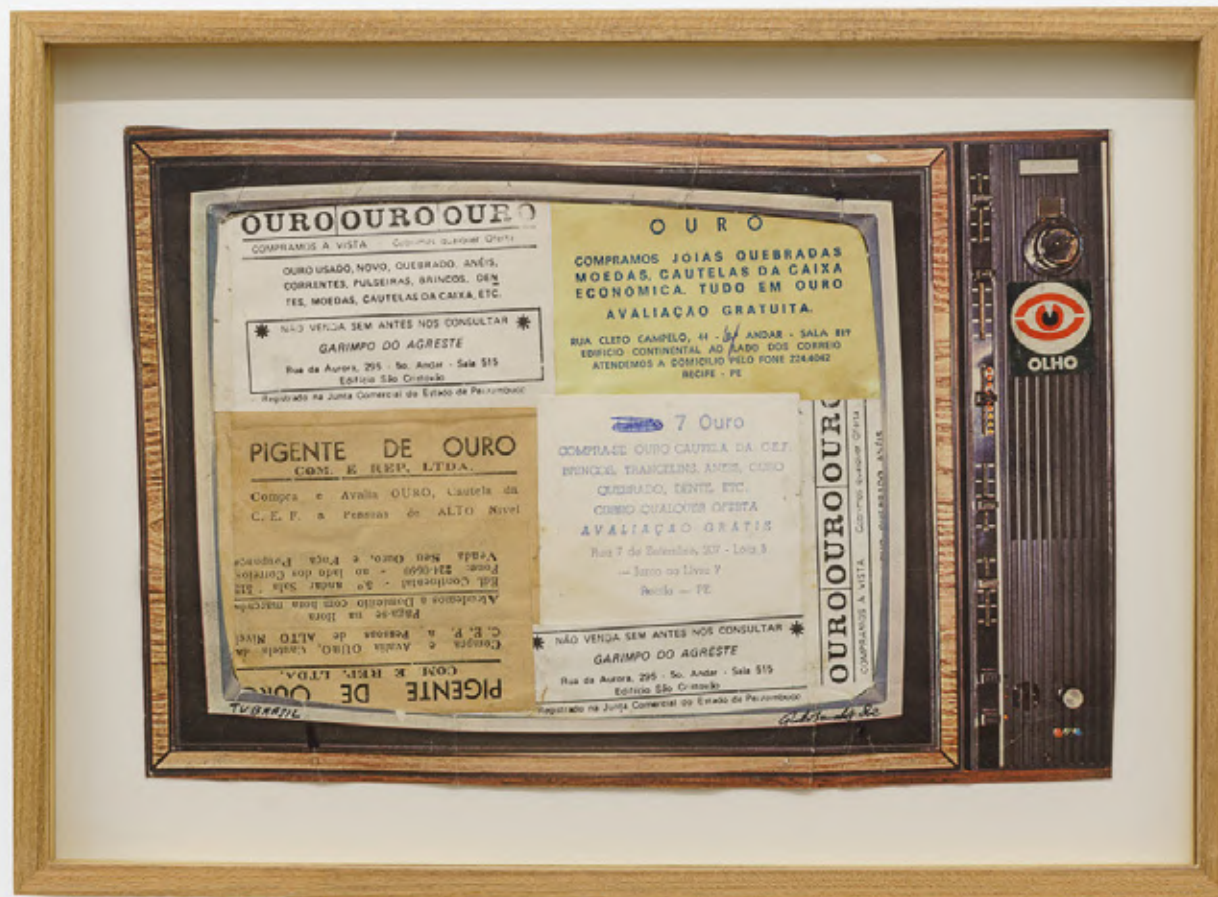 OURO OURO OURO
COMPRAMOS A VISTA - Cobrimos qualquer Oferta
OURO USADO, NOVO, QUEBRADO, ANÉIS,
CORRENTES, PULSEIRAS, BRINCOS, DEN
TES, MOEDAS, CAUTELAS DA CAIXA, ETC.
NÃO VENDA SEM ANTES NOS CONSULTAR
GARIMPO DO AGRESTE
Rua da Aurora, 295 - 5o. Andar - Sala 515
Edifício São Cristovão
Registrado na Junta Comercial do Estado de Pernambuco
OURO
COMPRAMOS JOIAS QUEBRADAS
MOEDAS, CAUTELAS DA CAIXA
ECONOMICA. TUDO EM OURO
AVALIAÇÃO GRATUITA.
RUA CLETO CAMPELO, 44 - ANDAR - SALA 819
EDIFICIO CONTINENTAL AO LADO DOS CORREIO
ATENDEMOS A DOMICILIO PELO FONE 224.4062
RECIFE - PE
OLHO
PIGENTE DE OURO
COM. E REP. LTDA.
Compra e Avalia OURO, Cautela da
C. E. F. a Pessoas de ALTO Nível
Venda Seu Ouro, e Faça Poupança
Fone: 224-0640 - ao lado dos Correios
Ed. Continental - 5º andar Sala - 512
Atendemos a Domicilio com hora marcada
Paga-se na Hora
C. E. F. a Pessoas de ALTO Nível
Compra e Avalia OURO, Cautela da
COM E REP. LTDA.
PIGENTE DE OURO
7 Ouro
COMPRA-SE OURO CAUTELA DA C.E.F.
BRINCOS, TRANCELINS, ANEIS, OURO
QUEBRADO, DENTE, ETC.
CUBRO QUALQUER OFERTA
AVALIAÇÃO GRATIS
Rua 7 de Setembro, 207 - Loja 5
— Junto ao Livro 7
Recife — PE
NÃO VENDA SEM ANTES NOS CONSULTAR
GARIMPO DO AGRESTE
Rua da Aurora, 295 - 5o. Andar - Sala 515
Edifício São Cristovão
Registrado na Junta Comercial do Estado de Pernambuco
OURO OURO OURO
COMPRAMOS A VISTA Cobrimos qualquer Oferta
TV BRASIL